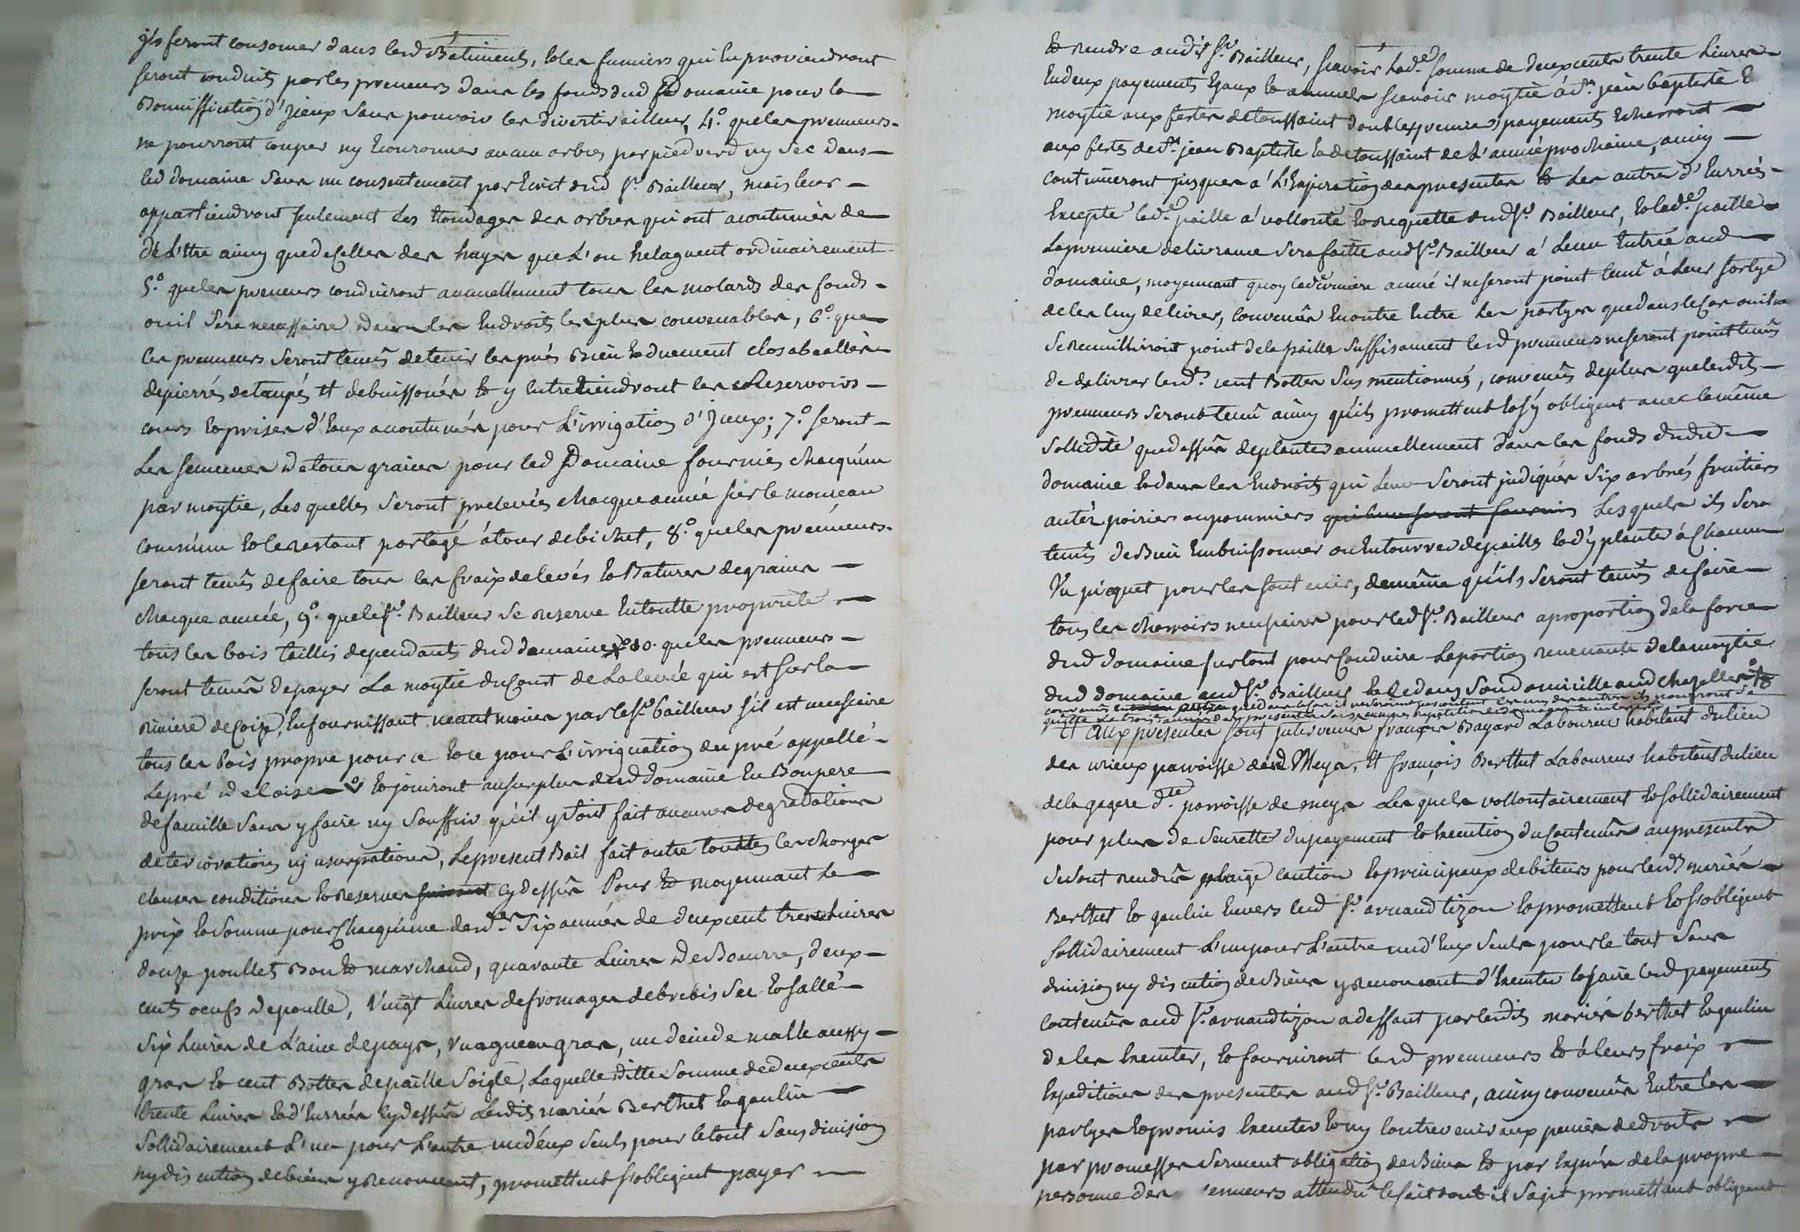 ils seront consomer dans lesd Batiments, et les fumiers qui en proviendront
seront conduits par les preneurs dans les fonds dud Domaine pour la
Bonniffication d'jceux sans pouvoir les divertir ailleurs, 4.° que les prenneurs
ne pourront couper ny Ecouronner aucun arbres par pied verd ny sec dans
led domaine sans un consentement par Ecrit dud Sr. Bailleur, mais leur
appartiendront seulement Les tondages des arbres qui ont acoutumés de
de L'Etre ainsy que de Celles des hayes que L'on Relaguent ordinairement
5.° que les preneurs conduiront annuellement tous les molards des fonds
ou il sera necessaire dans les Endroits les plus convenables, 6.° que
les prenneurs seront tenus de tenir les prés Bien et duement clos
depierrés detaupés et debuissonés et y Entretiendront les Reservoirs
cours et prises d'Eaux acoutumés pour L'irrigation d'Jceux; 7.° seront
Les semences de tous graines pour led Domaine fournies chacqu'un
par moytie, Les quelles seront prelevées chacque année sur le monceau
commun et le restant partagé à tour de bichet, 8.° que les preneurs
seront tenus de faire tous les fraix de levés et Batures de graines
chacque année, 9.° que le Sr. Bailleur se reserve En toutte proprieté
tous les bois taillis dependants dud domaine 10.° que les prenneurs
seront tenus de payer La moytie du Court de La levée qui est sur la
riviere de Coize, En fournissant neantmoins par le Sr. bailleur s'il est necessaire
tous les bois propre pour ce et ce pour L'irriguation du pré appellé
Le pré de Loise et jouiront au surplus dud domaine En Bon pere
de famille sans y faire ny souffrir qu'il y soit fait aucunes degradations
deteriorations ny usurpations, Le present Bail fait outre touttes les charges
clauses conditions et Reserves suivant cy dessus Pour et moyennant Le
prix et somme pour Chacqu'une desd. six années de deux cent trente Livres
douze poullets Bon et marchand, quarante Livres de Beurre, deux
cents oeufs de poulle, Vingt Livres de fromages de brebis sec et sallé
six Livres de Laine de pays, un agneau gras, un dinde malle aussy
gras et cent Bottes de paille soigle, Laquelle ditte somme de deux cents
trente Livres et d'Eurrés cy dessus Lesdits mariés Berthet et gaulin
sollidairement L'un pour L'autre un d'eux seuls pour le tout sans division
ny discution de biens y Renoncent, promettent s'obligent payer
Et rendre audit Sr. Bailleur, scavoir Lade. somme de deux cents trente Livres
En deux payements Egaux et annuels scavoir moytié à St. jean baptiste Et
moytie aux fetes de toussaint dont les premiers payements Echerront
aux fetes de St. jean Baptiste et de toussaint de L'année prochaine, ainsy
continueront jusques à L'Expiration des presentes Et Les autres d'Eurrés
Excepté lade. paille à vollonté et requette dud Sr. Bailleur, et lade. paille
La premiere delivrance sera faitte aud Sr. Bailleur à Leur Entrée aud
domaine, moyennant quoy lad derniere année il ne seront point tenus à Leur sortye
de les luy delivrer, Convenus Encontre Entre Les partyes que dans le Cas ou il ne
se receuilliroit point de la paille suffisament lesd prenneurs ne seront point tenus
de delivrer lesd. cent Bottes sus mentionnés, convenus de plus que lesdits
prenneurs seront tenus ainsy qu'ils promettent et s'y obligent avec la même
sollidité que dessus de planter annuellement dans les fonds dud.
domaine et dans les Endroits qui Leur seront jndiqués six arbres fruitiers
antés poiriers ou pommiers qui leur seront fournis Lesquels ils sero
tenus de Bien Embuissonner ou Entourrer de pailles et d'y planter à Chacun
Un picquet pour les soutenir, de même qu'ils seront tenus de faire
tous les charrois necessaires pour led Sr. Bailleur a proportion de la force
dud domaine surtout pour Conduire La portion revenante de la moytie
dud domaine aud Sr. Bailleur et ce dans son domicille aud chazelles
Et Aux presentes sont intervenus françois Bayard Laboureur habitant du lieu
des urieux parroisse dud Meys, Et françois Berthet Laboureur habitant du lieu
de la gagere dte. parroisse de meys Les quels vollontairement et sollidairement
pour plus de seurette du payement et Execution du Contenus au presents
se sont rendus plaige caution et principaux debiteurs pour lesd mariés
Berthet et gaulin Envers led Sr. arnaud tizon et promettent et s'obligent
sollidairement L'un pour L'autre un d'Eux seuls pour le tout sans
division ny discution de Biens y renoncant d'Executer et faire lesd payements
Contenus aud Sr. arnaud tizon a deffaut par lesdits mariés berthet et gaulin
de les Executer, et fourniront lesd prenneurs Et à leurs fraix
Expeditions des presentes aud Sr. Bailleur, ainsy convenus Entre les
partyes et promis Executer et ny Contrevenir aux peines de droits
par promesses serment obligation de Biens Et par Exprés de la propre
personne des enneurs attendu le fait dont il s'agit promettant obligeant